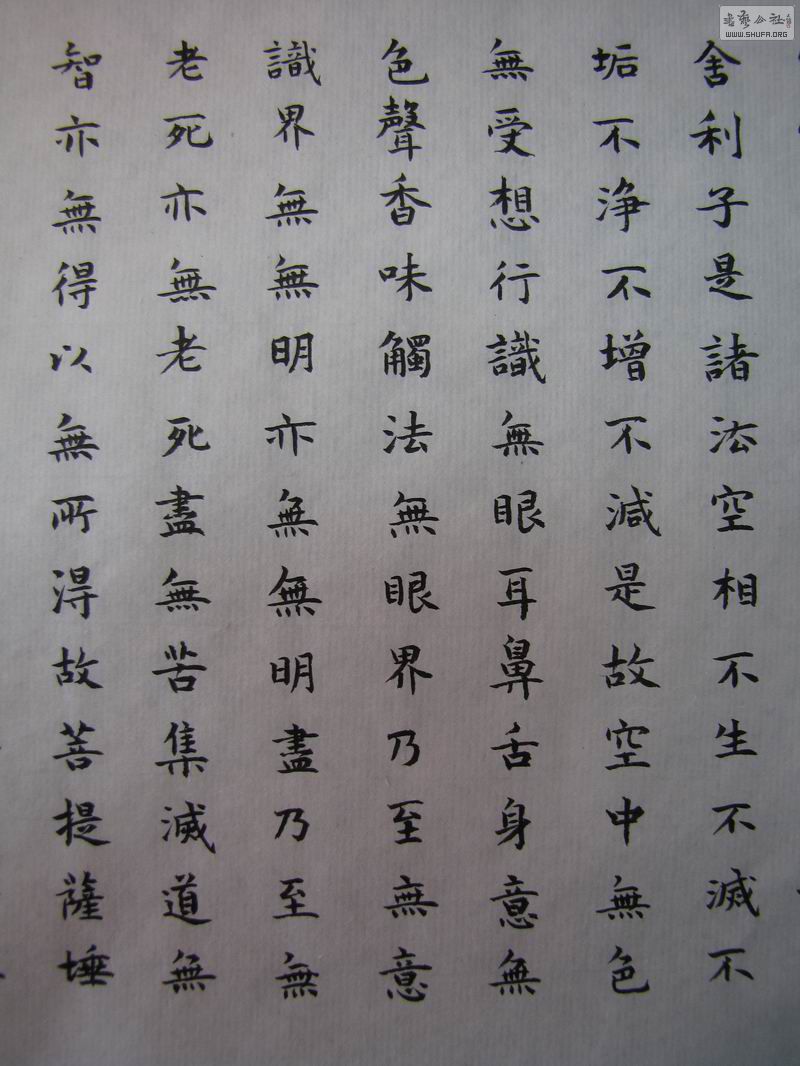 舍利子是諸法空相不生不滅不
垢不淨不增不減是故空中無色
無受想行識無眼耳鼻舌身意無
色聲香味觸法無眼界乃至無意
識界無無明亦無無明盡乃至無
老死亦無老死盡無苦集滅道無
智亦無得以無所得故菩提薩埵
WWW.SHUFA.ORG